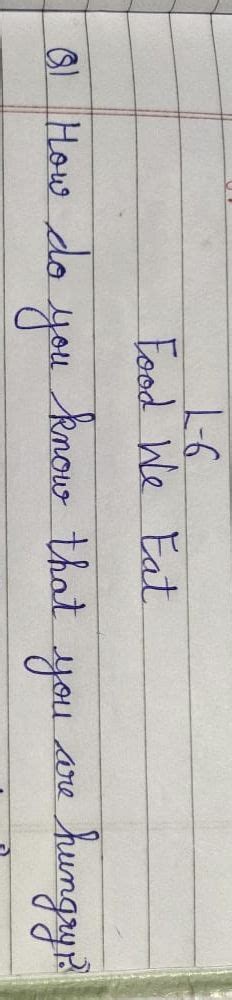 L-6
Food We Eat
Q1 How do you know that you are hungry?